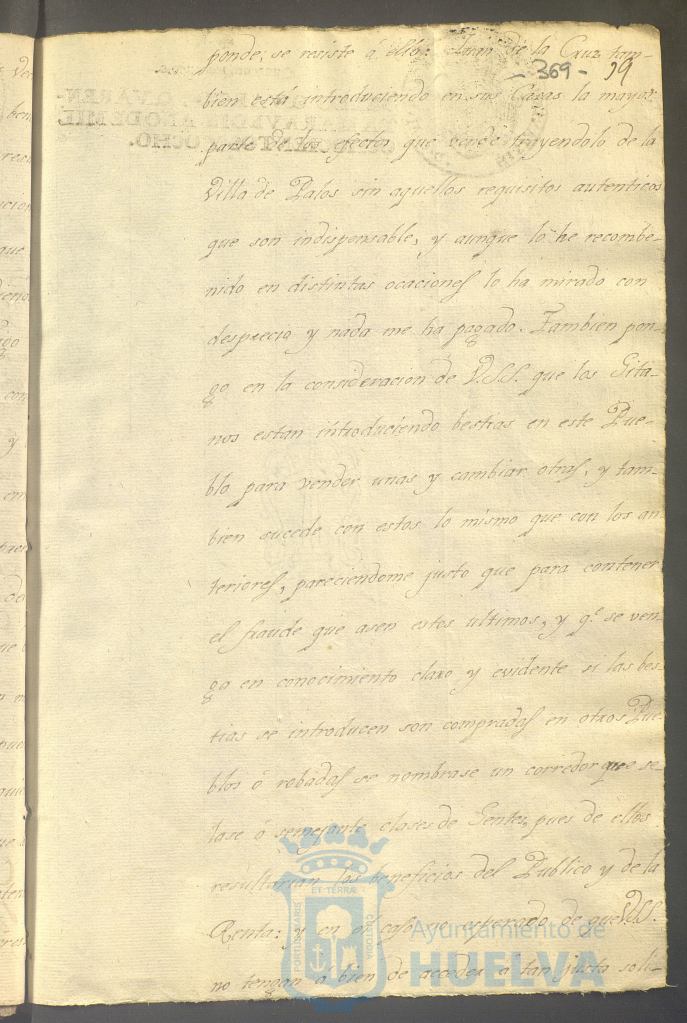 ponde, se resiste á ello: Juan de la Cruz tam-
- 369 - 19
bien está introduciendo en sus Casas la mayor
parte de los efectos que vende trayendolo de la
Villa de Palos sin aquellos requisitos autenticos
que son indispensable, y aunque lo he recombe-
nido en distintas ocaciones lo ha mirado con
desprecio y nada me ha pagado. Tambien pon-
go en la consideracion de V.SS. que los Gita-
nos estan introduciendo bestias en este Pue-
blo para vender unas y cambiar otras, y tam-
bien sucede con estos lo mismo que con los an
teriores, pareciendome justo que para contener
el fraude que asen estos ultimos, y q.e se ven
ga en conocimiento claro y evidente si las bes
tias se introducen son compradas en otros Pue
blos ó robadas se nombrase un corredor que se
lase ó semejante clases de Gente, pues de ellos
resultarian los beneficios del Publico y de la
Renta: y en el caso no esperado de que V.SS.
no tengan á bien de acceder a tan justa soli-
PORTUS MARIS
ET TERRÆ
CUSTODIA
Ayuntamiento de
HUELVA